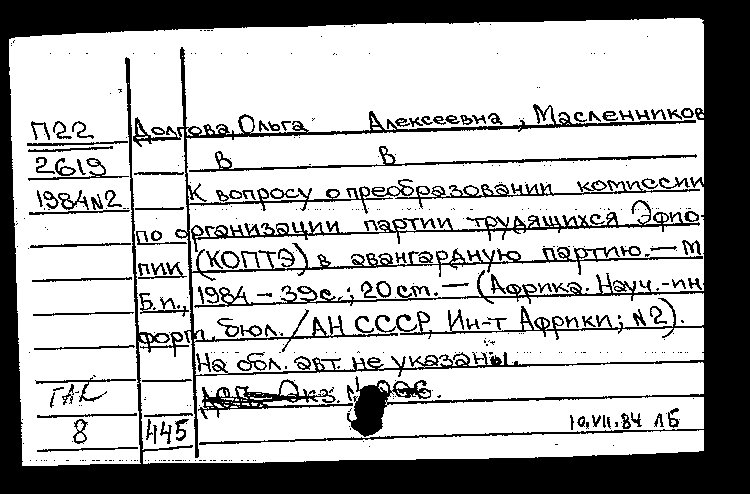 П22 Долгова, Ольга Алексеевна, Масленников
2619 В В
1984N2 К вопросу о преобразовании комиссии
по организации партии трудящихся Эфио-
пии (КОПТЭ) в авангардную партию. — М
Б.и., 1984 — 39 с.; 20 ст. — (Африка. Науч.-ин
форм. бюл. / АН СССР, Ин-т Африки; N2).
На обл. авт. не указаны.
Экз. N 006.
8 445 10.VII.84 ЛБ